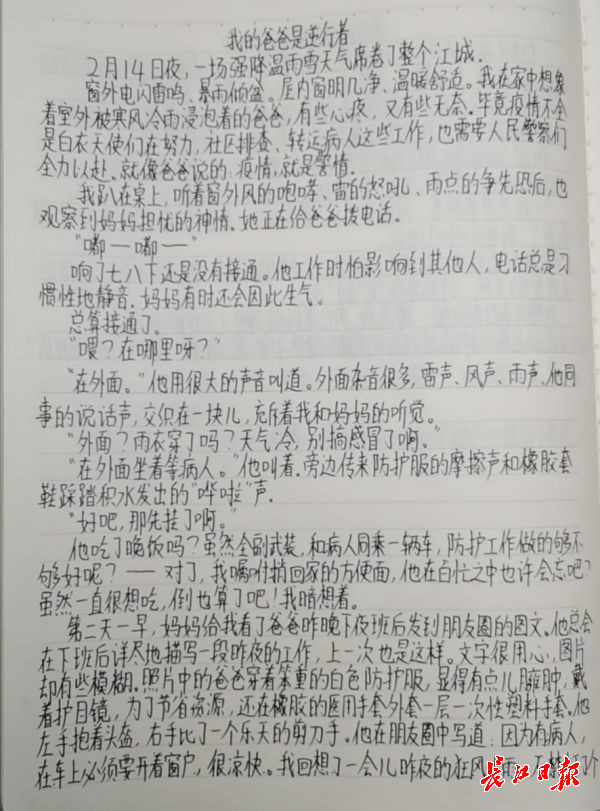 我的爸爸是逆行者
2月14日夜,一场强降温雨雪天气席卷了整个江城.
窗外电闪雷鸣、暴雨倾盆。屋内窗明几净、温暖舒适。我在家中想象
着室外被寒风冷雨浸泡着的爸爸,有些心疼,又有些无奈。毕竟疫情不全
是白衣天使们在努力,社区排查、转运病人这些工作,也需要人民警察们
全力以赴.就像爸爸说的:疫情,就是警情.
我趴在桌上,听着窗外风的咆哮、雷的怒吼、雨点的争先恐后,也
观察到妈妈担忧的神情.她正在给爸爸拨电话。
“嘟——嘟——”
响了七八下还是没有接通。他工作时怕影响到其他人,电话总是习
惯性地静音.妈妈有时还会因此生气。
总算接通了。
“喂?在哪里呀?”
“在外面。”他用很大的声音叫道。外面杂音很多,雷声、风声、雨声、他同
事的说话声,交织在一块儿,充斥着我和妈妈的听觉。
“外面?雨衣穿了吗?天气冷,别搞感冒了啊。”
“在外面坐着等病人。”他叫着.旁边传来防护服的摩擦声和橡胶套
鞋踩踏积水发出的“哗啦”声.
“好吧,那先挂了啊。”
他吃了晚饭吗?虽然全副武装,和病人同乘一辆车,防护工作做的够不
够好呢?——对了,我嘱咐捎回家的方便面,他在百忙之中也许会忘吧?
虽然一直很想吃,倒也算了吧!我暗想着.
第二天一早,妈妈给我看了爸爸昨晚下夜班后发到朋友圈的图文。他总会
在下班后详尽地描写一段昨夜的工作,上一次也是这样。文字很用心,图片
却有些模糊.照片中的爸爸穿着笨重的白色防护服,显得有点儿臃肿,戴
着护目镜,为了节省资源,还在橡胶的医用手套外套一层一次性塑料手套。他
左手抱着头盔,右手比了一个乐天的剪刀手。他在朋友圈中写道:因为有病人,
在车上必须要开着窗户,很凉快。我回想了一会儿昨夜的狂风
长江日报